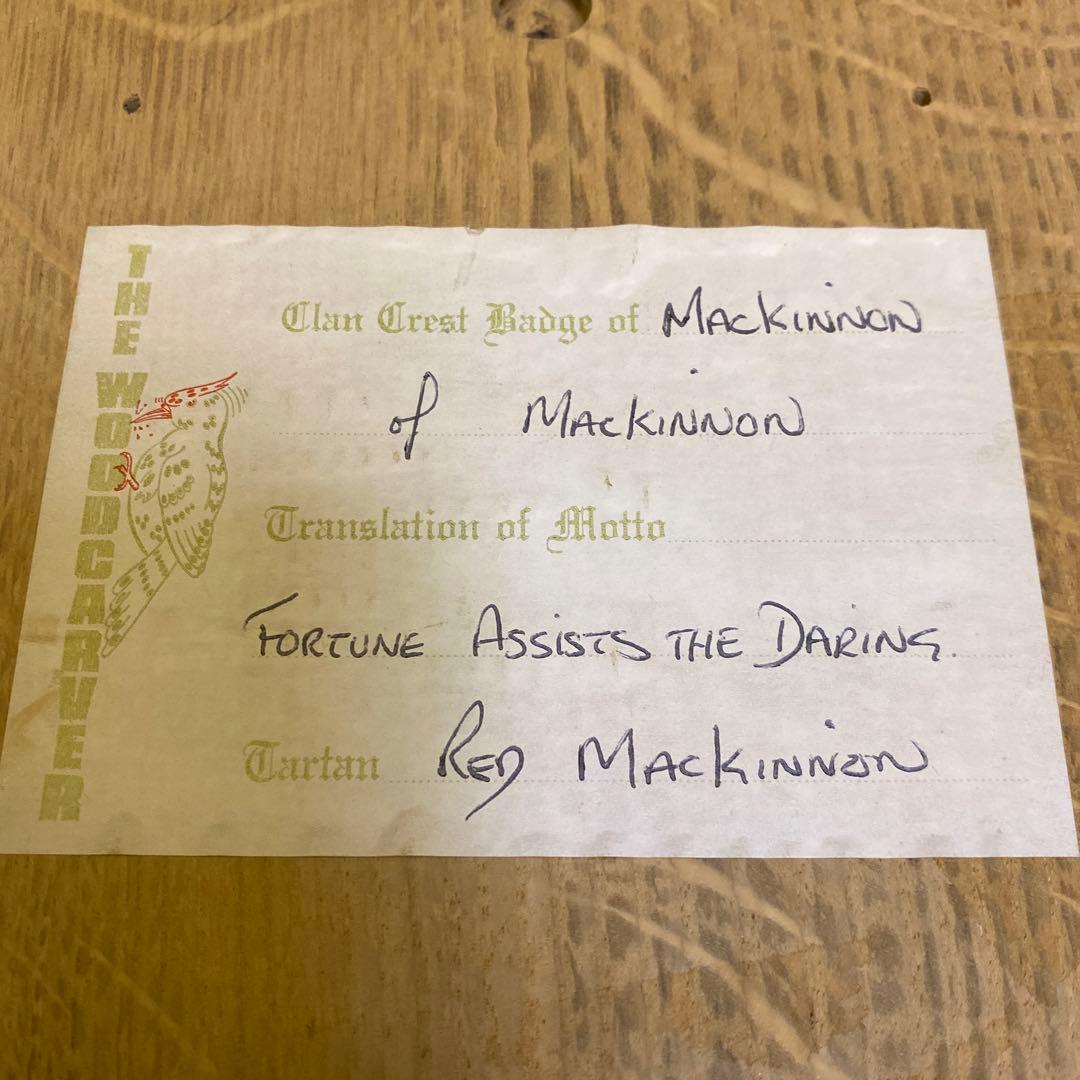 THE WOODCARVER
Clan Crest Badge of MacKinnon
of MacKinnon
Translation of Motto
Fortune Assists the Daring.
Tartan Red MacKinnon